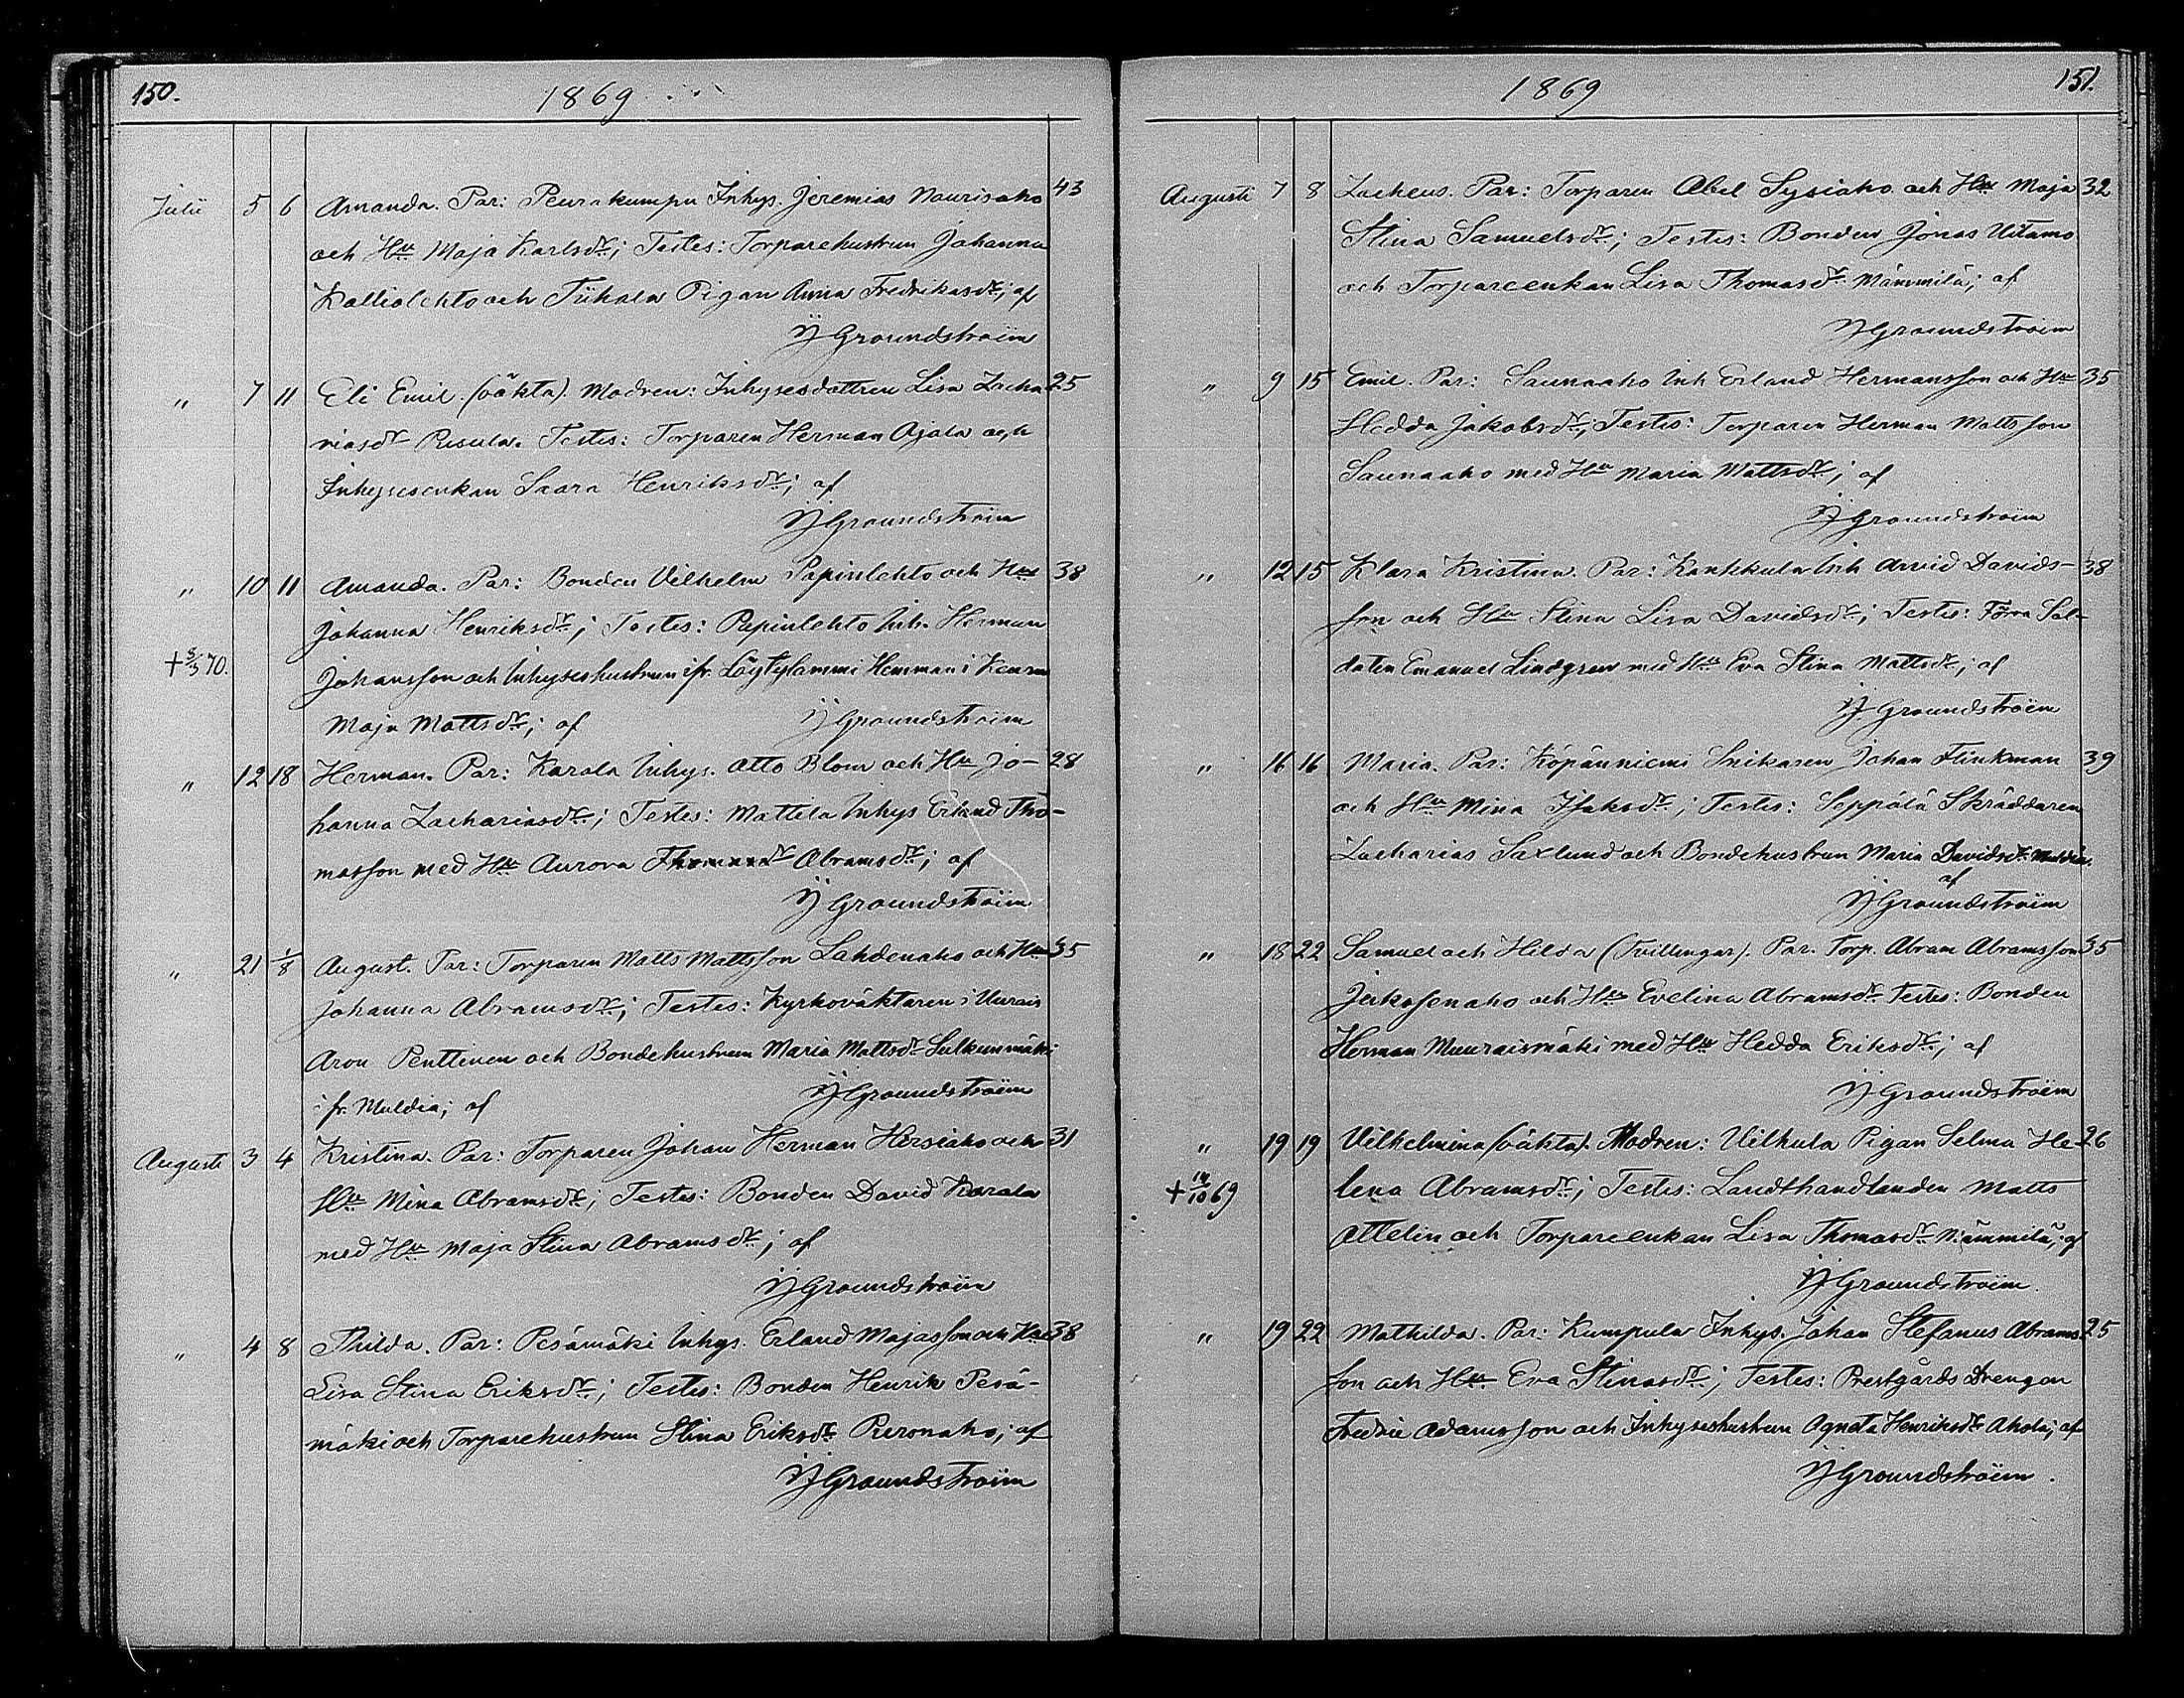 150.
1869
Julii 5 6 Amanda. Par: Peurakumpu Inhys. Jeremias Naurisaho 43
och Hu Maja Karlsdr; Testes: Torparehustrun Johanna
Kalliolehto och Tiihala Pigan Anna Fredriksdr; af
JJGroundstroëm
" 7 11 Eli Emil (oäkta). Modren: Inhysesdottren Lisa Zacha 25
riasdr Risula. Testes: Torparen Herman Ojala och
Inhysesenkan Saara Henriksdr; af
JJGroundstroëm
" 10 11 Amanda. Par: Bonden Vilhelm Papinlehto och Hu 38
Johanna Henriksdr; Testes: Papinlehto Inh. Herman
+ 5/3 70. Johansson och Inhyseshustrun ifr. Löytylammi Hemman i Keuru
Maja Mattsdr; af JJGroundstroëm
" 12 18 Herman. Par: Karala Inhys. Otto Blom och Hu Jo- 28
hanna Zachariasdr; Testes: Mattila Inhys Erland Tho-
masson med Hu Aurora Thomasdr Abramsdr; af
JJGroundstroëm
" 21 1/8 August. Par: Torparen Matts Mattsson Lahdenaho och Hu 35
Johanna Abramsdr; Testes: Kyrkoväktaren i Uurais
Aron Penttinen och Bondehustrun Maria Mattsdr Sulkunmäki
ifr. Muldia; af JJGroundstroëm
Augusti 3 4 Kristina. Par: Torparen Johan Herman Hirsiaho och 31
Hu Mina Abramsdr; Testes: Bonden David Karala
med Hu Maja Stina Abramsdr; af
JJGroundstroëm
" 4 8 Thilda. Par: Pesämäki Inhys. Erland Majasson och Hu 38
Lisa Stina Eriksdr; Testes: Bonden Henrik Pesä-
mäki och Torparehustrun Stina Eriksdr Rironaho; af
JJGroundstroëm
1869
151.
Augusti 7 8 Zacheus. Par: Torparen Abel Sysiaho och Hu Maja 32
Stina Samuelsdr; Testes: Bonden Jonas Uitamo
och Torpareenkan Lisa Thomasdr Mämmilä; af
JJGroundstroëm
" 9 15 Emil. Par: Saunaaho Inh Erland Hermansson och Hu 35
Hedda Jakobsdr; Testes: Torparen Herman Mattsson
Saunaaho med Hu Maria Mattsdr; af
JJGroundstroëm
" 12 15 Klara Kristina. Par: Kankkula Inh Arvid Davids- 38
son och Hu Stina Lisa Davidsdr; Testes: Förra Sol-
daten Emanuel Lindgren med Hu Eva Stina Mattsdr; af
JJGroundstroëm
" 16 16 Maria. Par: Köpänniemi Snikaren Johan Flinkman 39
och Hu Mina Isaksdr; Testes: Seppälä Skräddaren
Zacharias Saxlund och Bondehustrun Maria Davidsdr Muldia.
af
JJGroundstroëm
" 18 22 Samuel och Hilda (Tvillingar). Par. Torp. Abram Abramsson 35
Jerkosenaho och Hu Evelina Abramsdr Testes: Bonden
Herman Muuraismäki med Hu Hedda Eriksdr; af
JJGroundstroëm
" 19 19 Vilhelmina (oäkta). Modren: Vilhula Pigan Selma He- 26
+ /10 69 lena Abramsdr; Testes: Landthandlanden Matts
Attelin och Torpareenkan Lisa Thomasdr Mämmilä; af
JJGroundstroëm.
" 19 22 Mathilda. Par: Kumpula Inhys. Johan Stefanus Abrams 25
son och Hu Eva Stinasdr; Testes: Prestgårds Drengen
Fredric Adamsson och Inhyseshustrun Agneta Henriksdr Ahola; af
JJGroundstroëm.